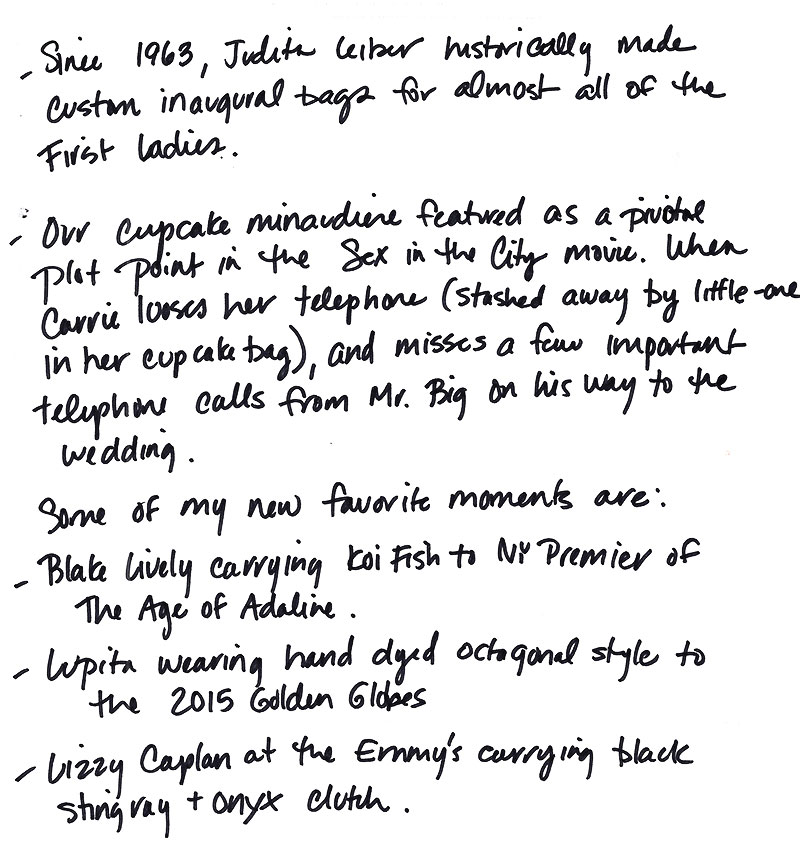 - Since 1963, Judith Leiber historically made
custom inaugural bags for almost all of the
First Ladies.
- Our cupcake minaudiere featured as a pivotal
plot point in the Sex in the City movie. When
Carrie looses her telephone (stashed away by little-one
in her cupcake bag), and misses a few important
telephone calls from Mr. Big on his way to the
wedding.
Some of my new favorite moments are:
- Blake Lively carrying Koi Fish to NY Premier of
The Age of Adaline.
- Lupita wearing hand dyed octagonal style to
the 2015 Golden Globes
- Lizzy Caplan at the Emmy's carrying black
stingray + onyx clutch.